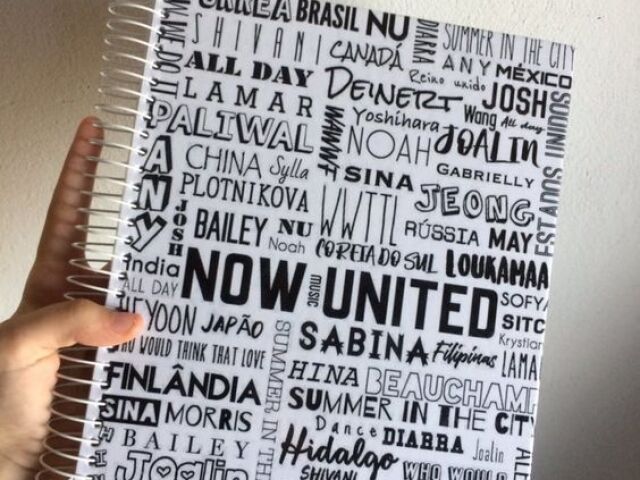 BRASIL NU
SHIVANI
CANADÁ
DIARRA
SUMMER IN THE CITY
ANY MÉXICO
ALL DAY
Reino unido
LAMAR
DEINERT
JOSH
Wang All day
PALIWAL
Yoshihara
WAWWF
NOAH
JOALIN
ESTADOS UNIDOS
ANY
CHINA Sylla
SINA
GABRIELLY
PLOTNIKOVA
WWTTL
JEONG
JOSH
BAILEY NU
Noah
RÚSSIA MAY
COREIA DO SUL
LOUKAMAA
India
ALL DAY
NOW UNITED
music
SOFYA
HEYOON JAPÃO
SABINA Filipinas
SITC
Krystian
WHO WOULD THINK THAT LOVE
LAMA
SUMMER IN THE
HINA BEAUCHAMP
FINLÂNDIA
SUMMER IN THE CITY
SINA MORRIS
Dance DIARRA Joalin
BAILEY
Hidalgo
ALL
Joalin
SHIVANI
WHO WOULD